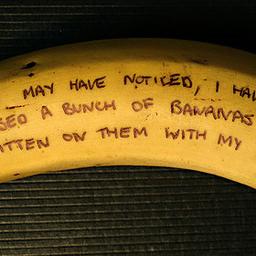 MAY HAVE NOTICED, I HA
SED A BUNCH OF BANANAS
ITTEN ON THEM WITH MY